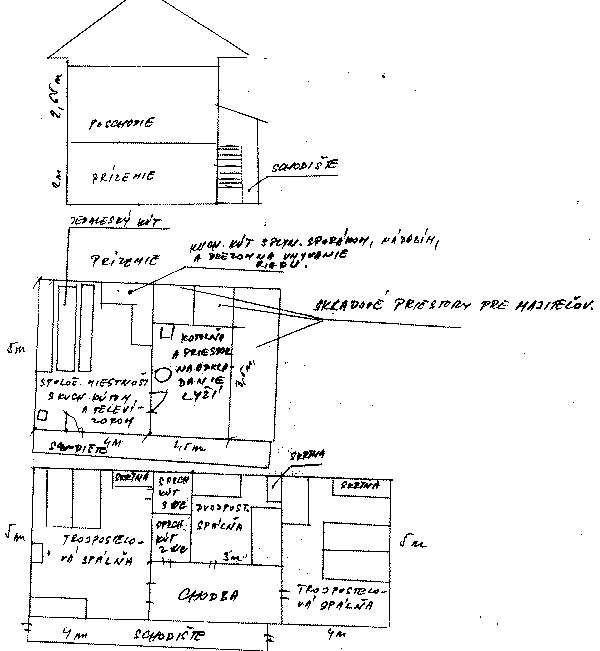 2,65 m
POSCHODIE
2 m
PRÍZEMIE
SCHODIŠTE
JEDÁLESKÝ KÚT
PRÍZEMIE
KUCH. KÚT S PLYN. SPORÁKOM, RIADOM,
A DREZOM NA UMÝVANIE
RIADU.
SKLADOVÉ PRIESTORY PRE MAJITEĽOV.
5m
KOTOLŇA
A PRIESTOR
NA ODKLA-
DANIE
LYŽÍ
3,5m
SPOLOČ. MIESTNOSŤ
S KUCH. KÚTOM
A TELEVÍ-
ZOROM
4M
2,5m
SCHODIŠTE
SKRIŇA
SKRIŇA
SPRCH
KÚT
S WC
DVOJPOST.
SPÁLŇA
SKRIŇA
5m
TROJPOSTEĽO-
VÁ SPÁLŇA
SPRCH.
KÚT
2 WC
3m
5m
CHODBA
TROJPOSTEĽO-
VÁ SPÁLŇA
4m
SCHODIŠTE
4m